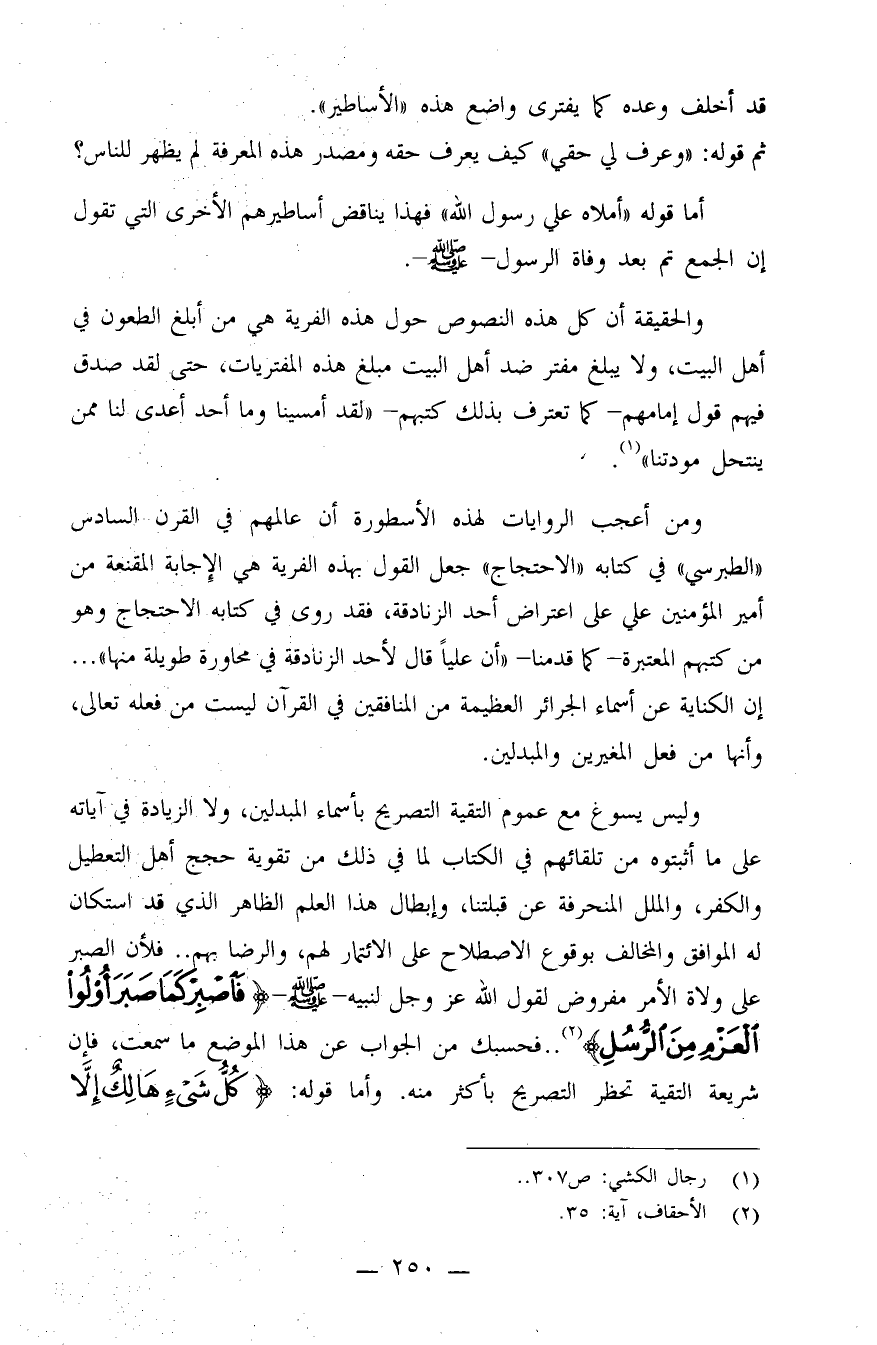 قد أخلف وعده كما يفترى واضع هذه «الأساطير».
ثم قوله: «وعرف لي حقي» كيف يعرف حقه ومصدر هذه المعرفة لم يظهر للناس؟
أما قوله «أملاه علي رسول الله» فهذا يناقض أساطيرهم الأخرى التي تقول
إن الجمع تم بعد وفاة الرسول– ﷺ–.
والحقيقة أن كل هذه النصوص حول هذه الفرية هي من أبلغ الطعون في
أهل البيت، ولا يبلغ مفتر ضد أهل البيت مبلغ هذه المفتريات، حتى لقد صدق
فيهم قول إمامهم– كما تعترف بذلك كتبهم– «لقد أمسينا وما أحد أعدى لنا ممن
ينتحل مودتنا»(١).
ومن أعجب الروايات لهذه الأسطورة أن عالمهم في القرن السادس
«الطبرسي» في كتابه «الاحتجاج» جعل القول بهذه الفرية هي الإجابة المقنعة من
أمير المؤمنين علي على اعتراض أحد الزنادقة، فقد روى في كتابه الاحتجاج وهو
من كتبهم المعتبرة– كما قدمنا– «أن علياً قال لأحد الزنادقة في محاورة طويلة منها»...
إن الكناية عن أسماء الجرائر العظيمة من المنافقين في القرآن ليست من فعله تعالى،
وأنها من فعل المغيرين والمبدلين.
وليس يسوغ مع عموم التقية التصريح بأسماء المبدلين، ولا الزيادة في آياته
على ما أثبتوه من تلقائهم في الكتاب لما في ذلك من تقوية حجج أهل التعطيل
والكفر، والملل المنحرفة عن قبلتنا، وإبطال هذا العلم الظاهر الذي قد استكان
له الموافق والمخالف بوقوع الاصطلاح على الائتمار لهم، والرضا بهم.. فلأن الصبر
على ولاة الأمر مفروض لقول الله عز وجل لنبيه– ﷺ–﴿ فَٱصۡبِرۡ كَمَا صَبَرَ أُوْلُواْ
ٱلۡعَزۡمِ مِنَ ٱلرُّسُلِ﴾(٢)..فحسبك من الجواب عن هذا الموضع ما سمعت، فإن
شريعة التقية تحظر التصريح بأكثر منه. وأما قوله: ﴿ كُلُّ شَيۡءٍ هَالِكٌ إِلَّا
(١) رجال الكشي: ص٣٠٧..
(٢) الأحقاف، آية: ٣٥.
— ٢٥٠ —